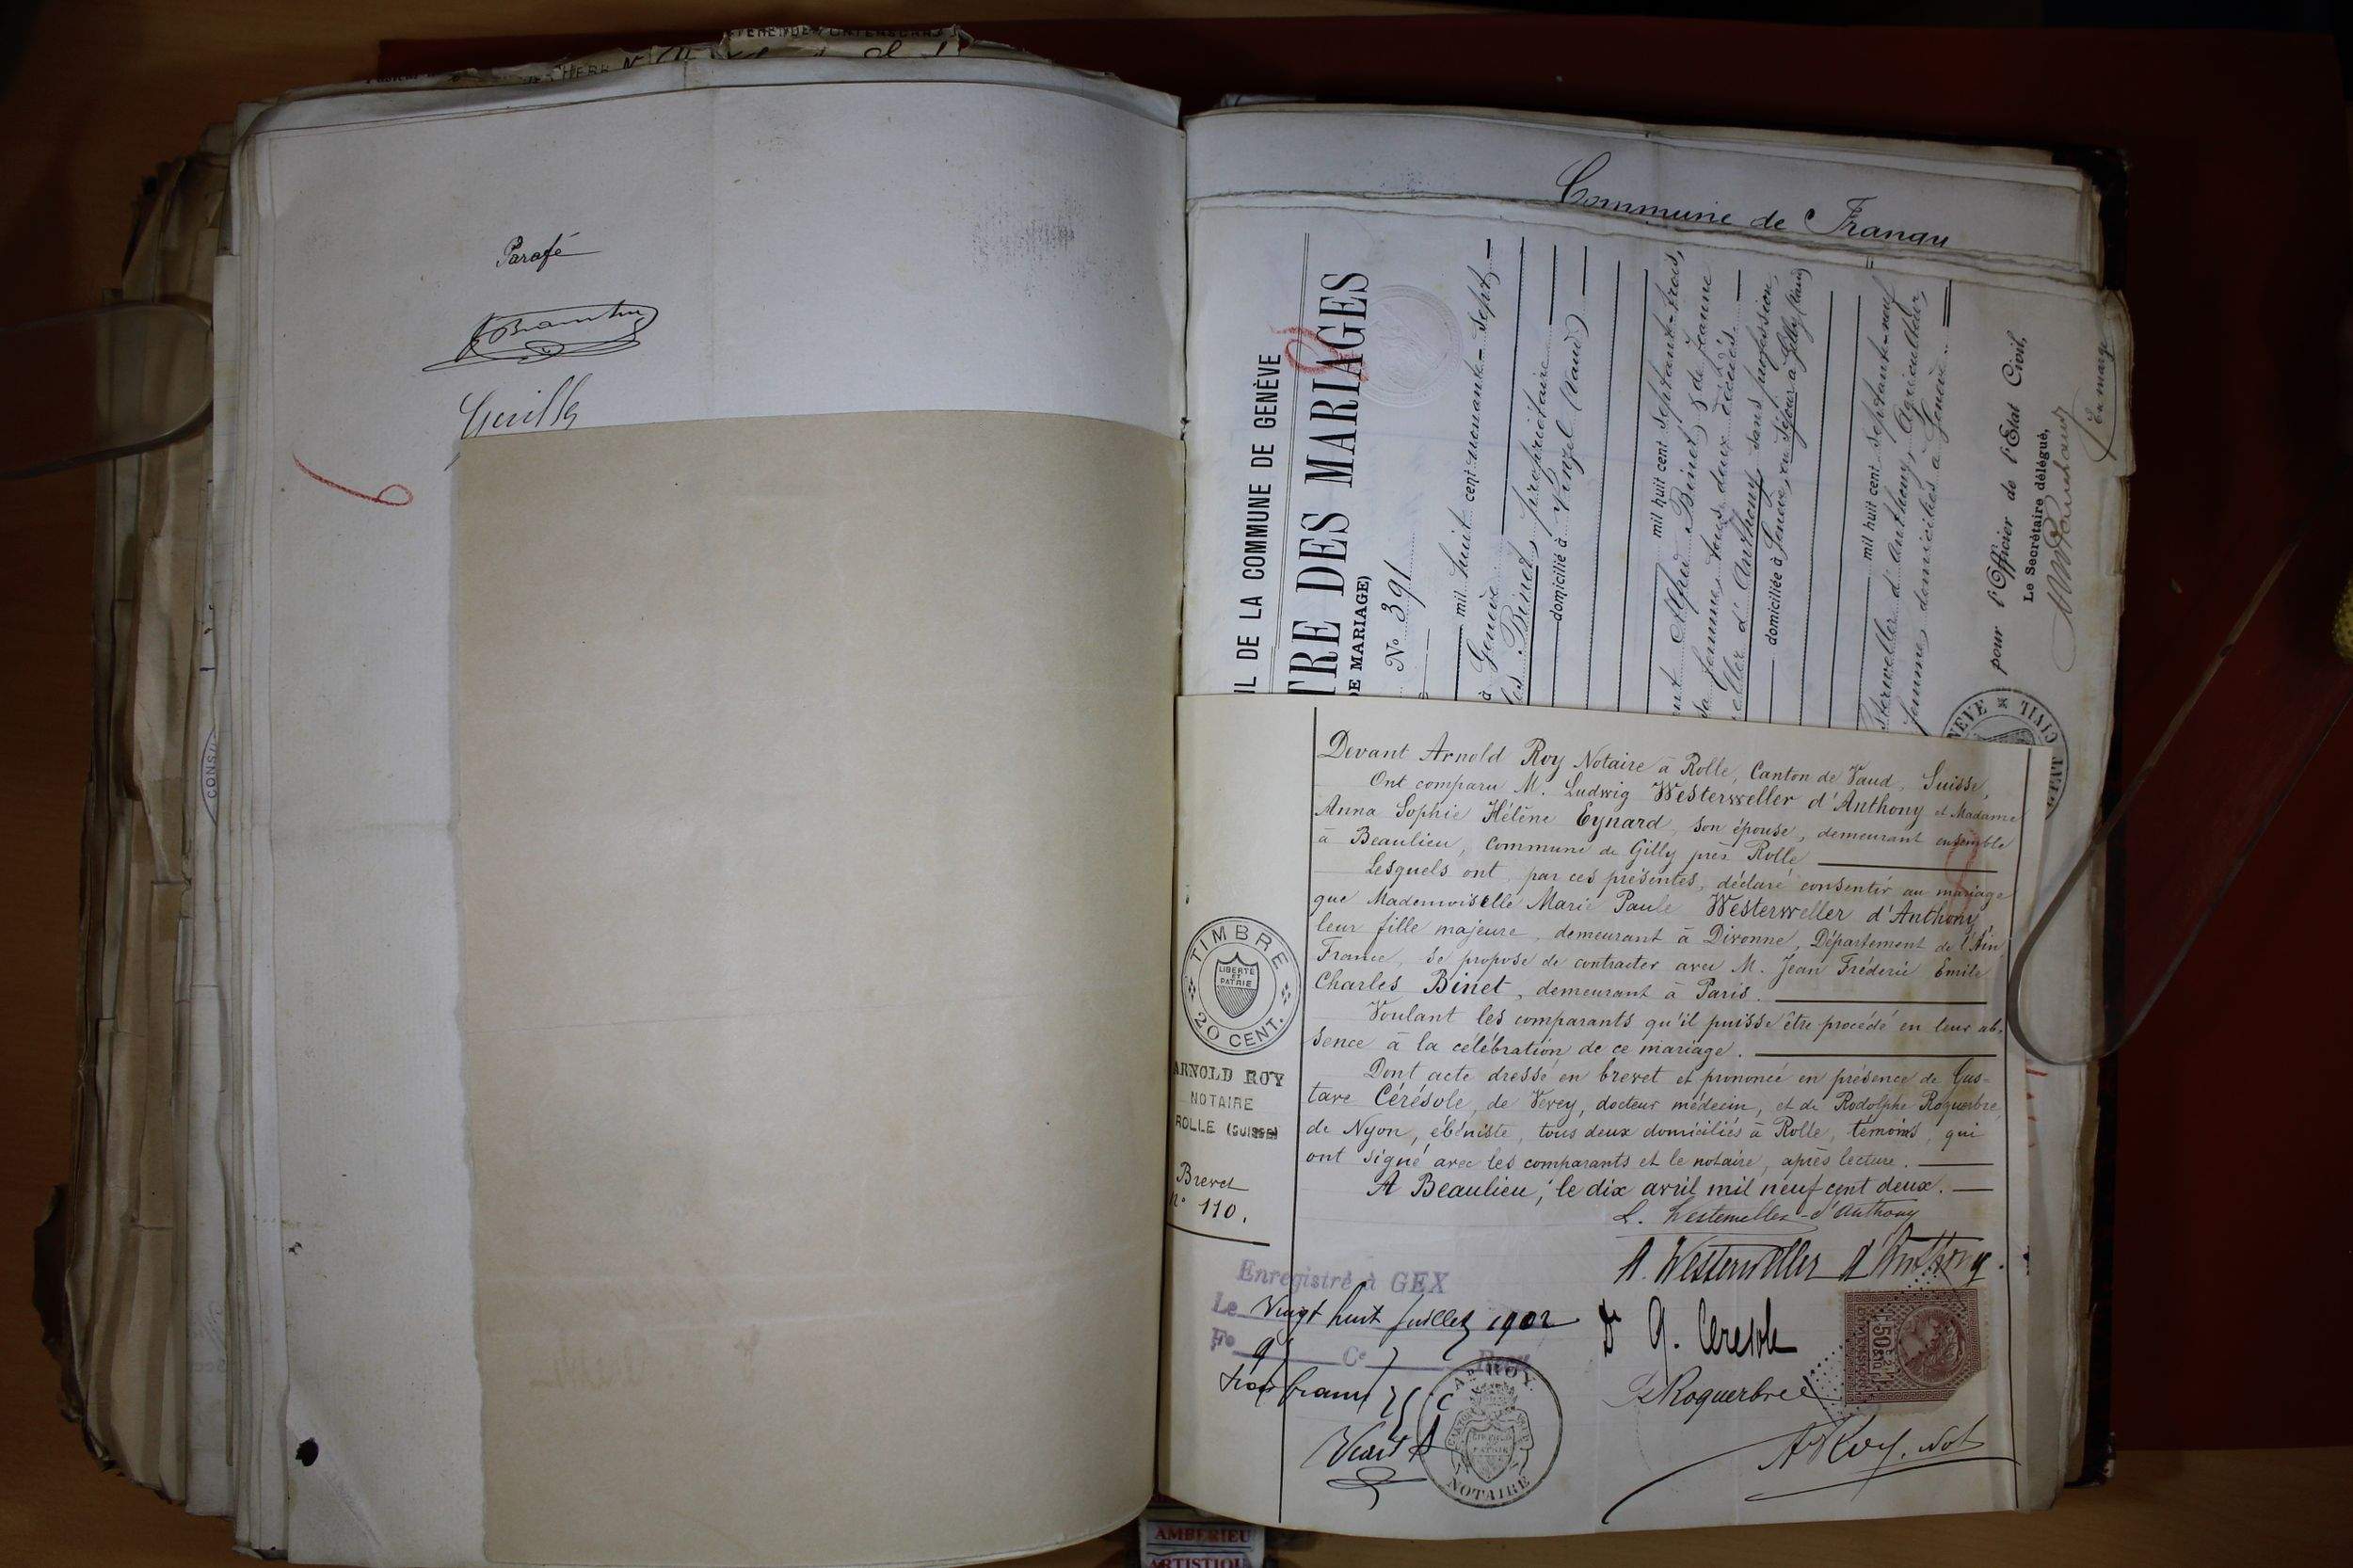 Parafé
6
Commune de
IL DE LA COMMUNE DE GENÈVE
TRE DES MARIAGES
DE MARIAGE)
N° 391
mil huit cent nonante-sept
à Genève
les Binet, propriétaire
domicilié à Vinzel (Vaud)
mil huit cent septante-trois,
Binet & de Jeanne
sa femme, tous deux décédés.
d'Anthony, sans profession,
domiciliée à Genève, en séjour à Gilly (Vaud)
mil huit cent septante-neuf
d'Anthony, Agriculteur,
femme, domiciliés à Genève.
pour l'Officier de l'Etat Civil,
Le Secrétaire délégué,
Devant Arnold Roy Notaire à Rolle, Canton de Vaud, Suisse,
Ont comparu M. Ludwig Westerweller d'Anthony et Madame
Anna Sophie Hélène Eynard, son épouse, demeurant ensemble
à Beaulieu, Commune de Gilly près Rolle
Lesquels ont, par ces présentes, déclaré consentir au mariage
que Mademoiselle Marie Paule Westerweller d'Anthony,
leur fille majeure, demeurant à Divonne, Département de l'Ain,
France, se propose de contracter avec M. Jean Fréderic Emile
Charles Binet, demeurant à Paris.
Voulant les comparants qu'il puisse être procédé en leur ab-
sence à la célébration de ce mariage.
Dont acte dressé en brevet et prononcé en présence de Gus-
tave Cérésole, de Vevey, docteur médecin, et de Rodolphe Roquerbre,
de Nyon, ébéniste, tous deux domiciliés à Rolle, témoins, qui
ont signé avec les comparants et le notaire, après lecture.
A Beaulieu, le dix avril mil neuf cent deux.
L. Westerweller-d'Anthony
A. Westerweller d'Anthony.
Dr G. Ceresole
R Roquerbre
A Roy, not
TIMBRE
LIBERTÉ
ET
PATRIE
20 CENT.
ARNOLD ROY
NOTAIRE
ROLLE (SUISSE)
Brevet
N° 110.
Enregistré à GEX
Le Vingt huit Juillet 1902
F° 9 C°
trois francs 75 c
AD ROY
NOTAIRE
CONS
AMBERIEU
ARTISTIQU